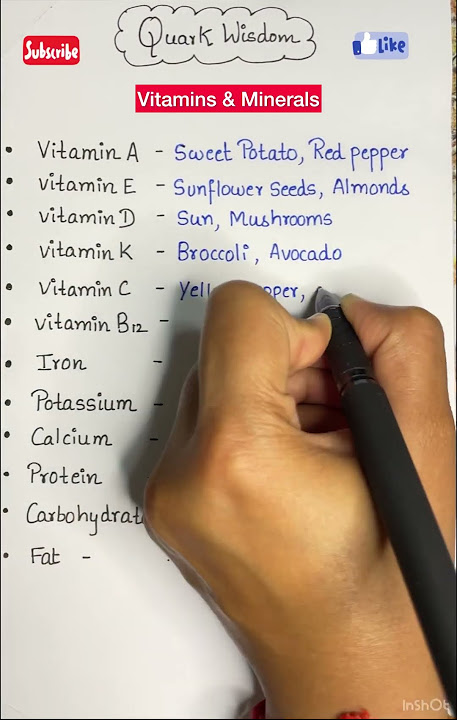 Subscribe
Quark Wisdom
Like
Vitamins & Minerals
• Vitamin A - Sweet Potato, Red pepper
• Vitamin E - Sunflower Seeds, Almonds
• Vitamin D - Sun, Mushrooms
• Vitamin K - Broccoli, Avocado
• Vitamin C -
• Vitamin B12 -
• Iron -
• Potassium -
• Calcium -
• Protein
•
• Fat -
InShOt